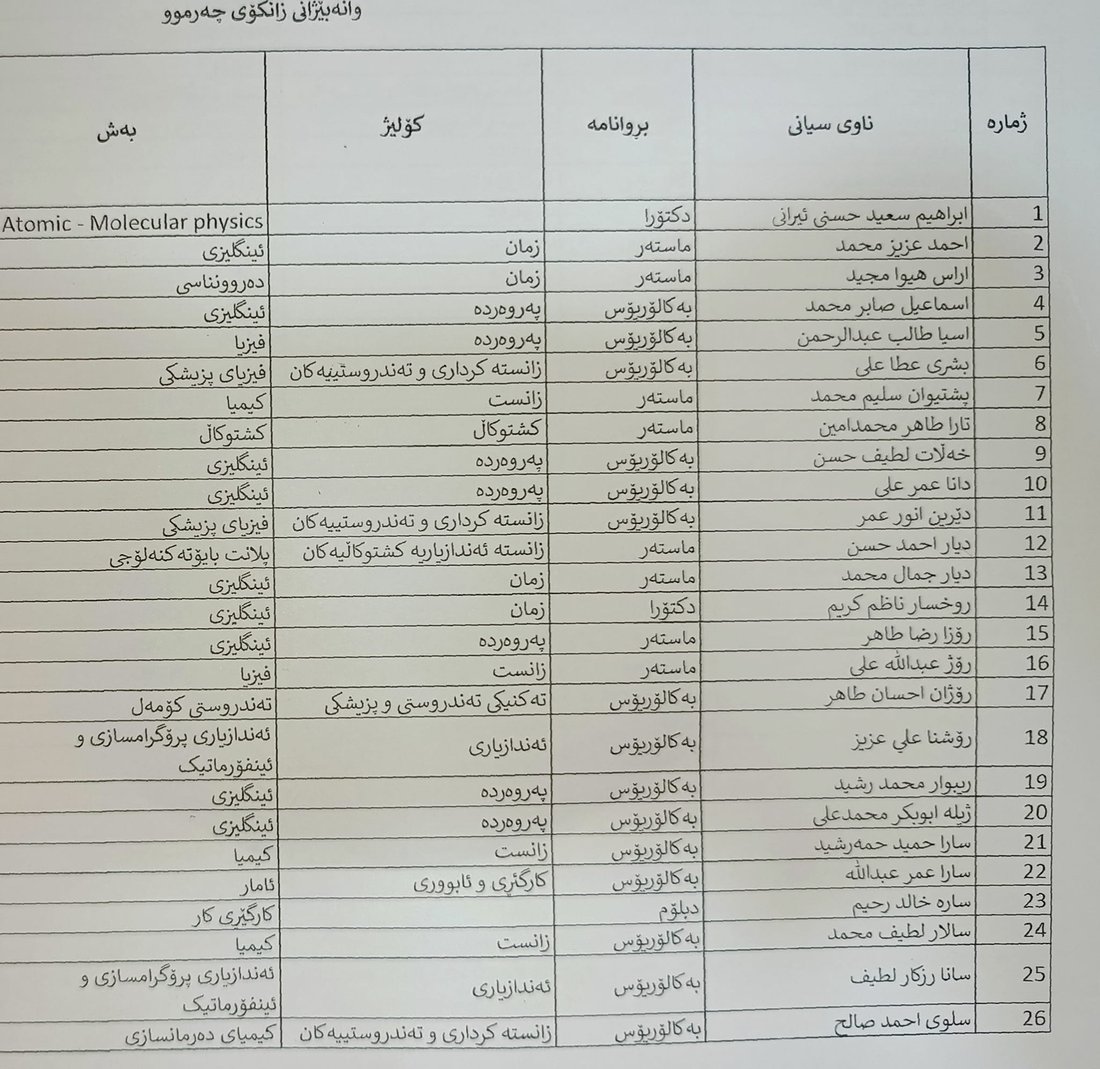 وانەبێژانی زانکۆی چەرموو
ژمارە ناوی سیانی بڕوانامە کۆلیژ بەش
1 ابراهیم سعید حسنی ئیرانی دکتۆرا Atomic - Molecular physics
2 احمد عزیز محمد ماستەر زمان ئینگلیزی
3 اراس هیوا مجید ماستەر زمان دەروونناسی
4 اسماعیل صابر محمد بەکالۆریۆس پەروەردە ئینگلیزی
5 اسیا طالب عبدالرحمن بەکالۆریۆس پەروەردە فیزیا
6 بشری عطا علی بەکالۆریۆس زانستە کرداری و تەندروستییەکان فیزیای پزیشکی
7 پشتیوان سلیم محمد ماستەر زانست کیمیا
8 تارا طاهر محمدامین ماستەر کشتوکاڵ کشتوکاڵ
9 خەڵات لطیف حسن بەکالۆریۆس پەروەردە ئینگلیزی
10 دانا عمر علی بەکالۆریۆس پەروەردە ئینگلیزی
11 دێرین انور عمر بەکالۆریۆس زانستە کرداری و تەندروستییەکان فیزیای پزیشکی
12 دیار احمد حسن ماستەر زانستە ئەندازیاریە کشتوکاڵیەکان پلانت بایۆتەکنەلۆجی
13 دیار جمال محمد ماستەر زمان ئینگلیزی
14 روخسار ناظم کریم دکتۆرا زمان ئینگلیزی
15 رۆزا رضا طاهر ماستەر پەروەردە ئینگلیزی
16 رۆژ عبدالله علی ماستەر زانست فیزیا
17 رۆژان احسان طاهر بەکالۆریۆس تەکنیکی تەندروستی و پزیشکی تەندروستی کۆمەل
18 رۆشنا علي عزیز بەکالۆریۆس ئەندازیاری ئەندازیاری پرۆگرامسازی و
ئینفۆرماتیک
19 ریبوار محمد رشید بەکالۆریۆس پەروەردە ئینگلیزی
20 ژیلە ابوبکر محمدعلی بەکالۆریۆس پەروەردە ئینگلیزی
21 سارا حمید حمەرشید بەکالۆریۆس زانست کیمیا
22 سارا عمر عبدالله بەکالۆریۆس کارگێڕی و ئابووری ئامار
23 سارە خالد رحیم دبلۆم کارگێڕی کار
24 سالار لطیف محمد بەکالۆریۆس زانست کیمیا
25 سانا رزکار لطیف بەکالۆریۆس ئەندازیاری ئەندازیاری پرۆگرامسازی و
ئینفۆرماتیک
26 سلوی احمد صالح بەکالۆریۆس زانستە کرداری و تەندروستییەکان کیمیای دەرمانسازی